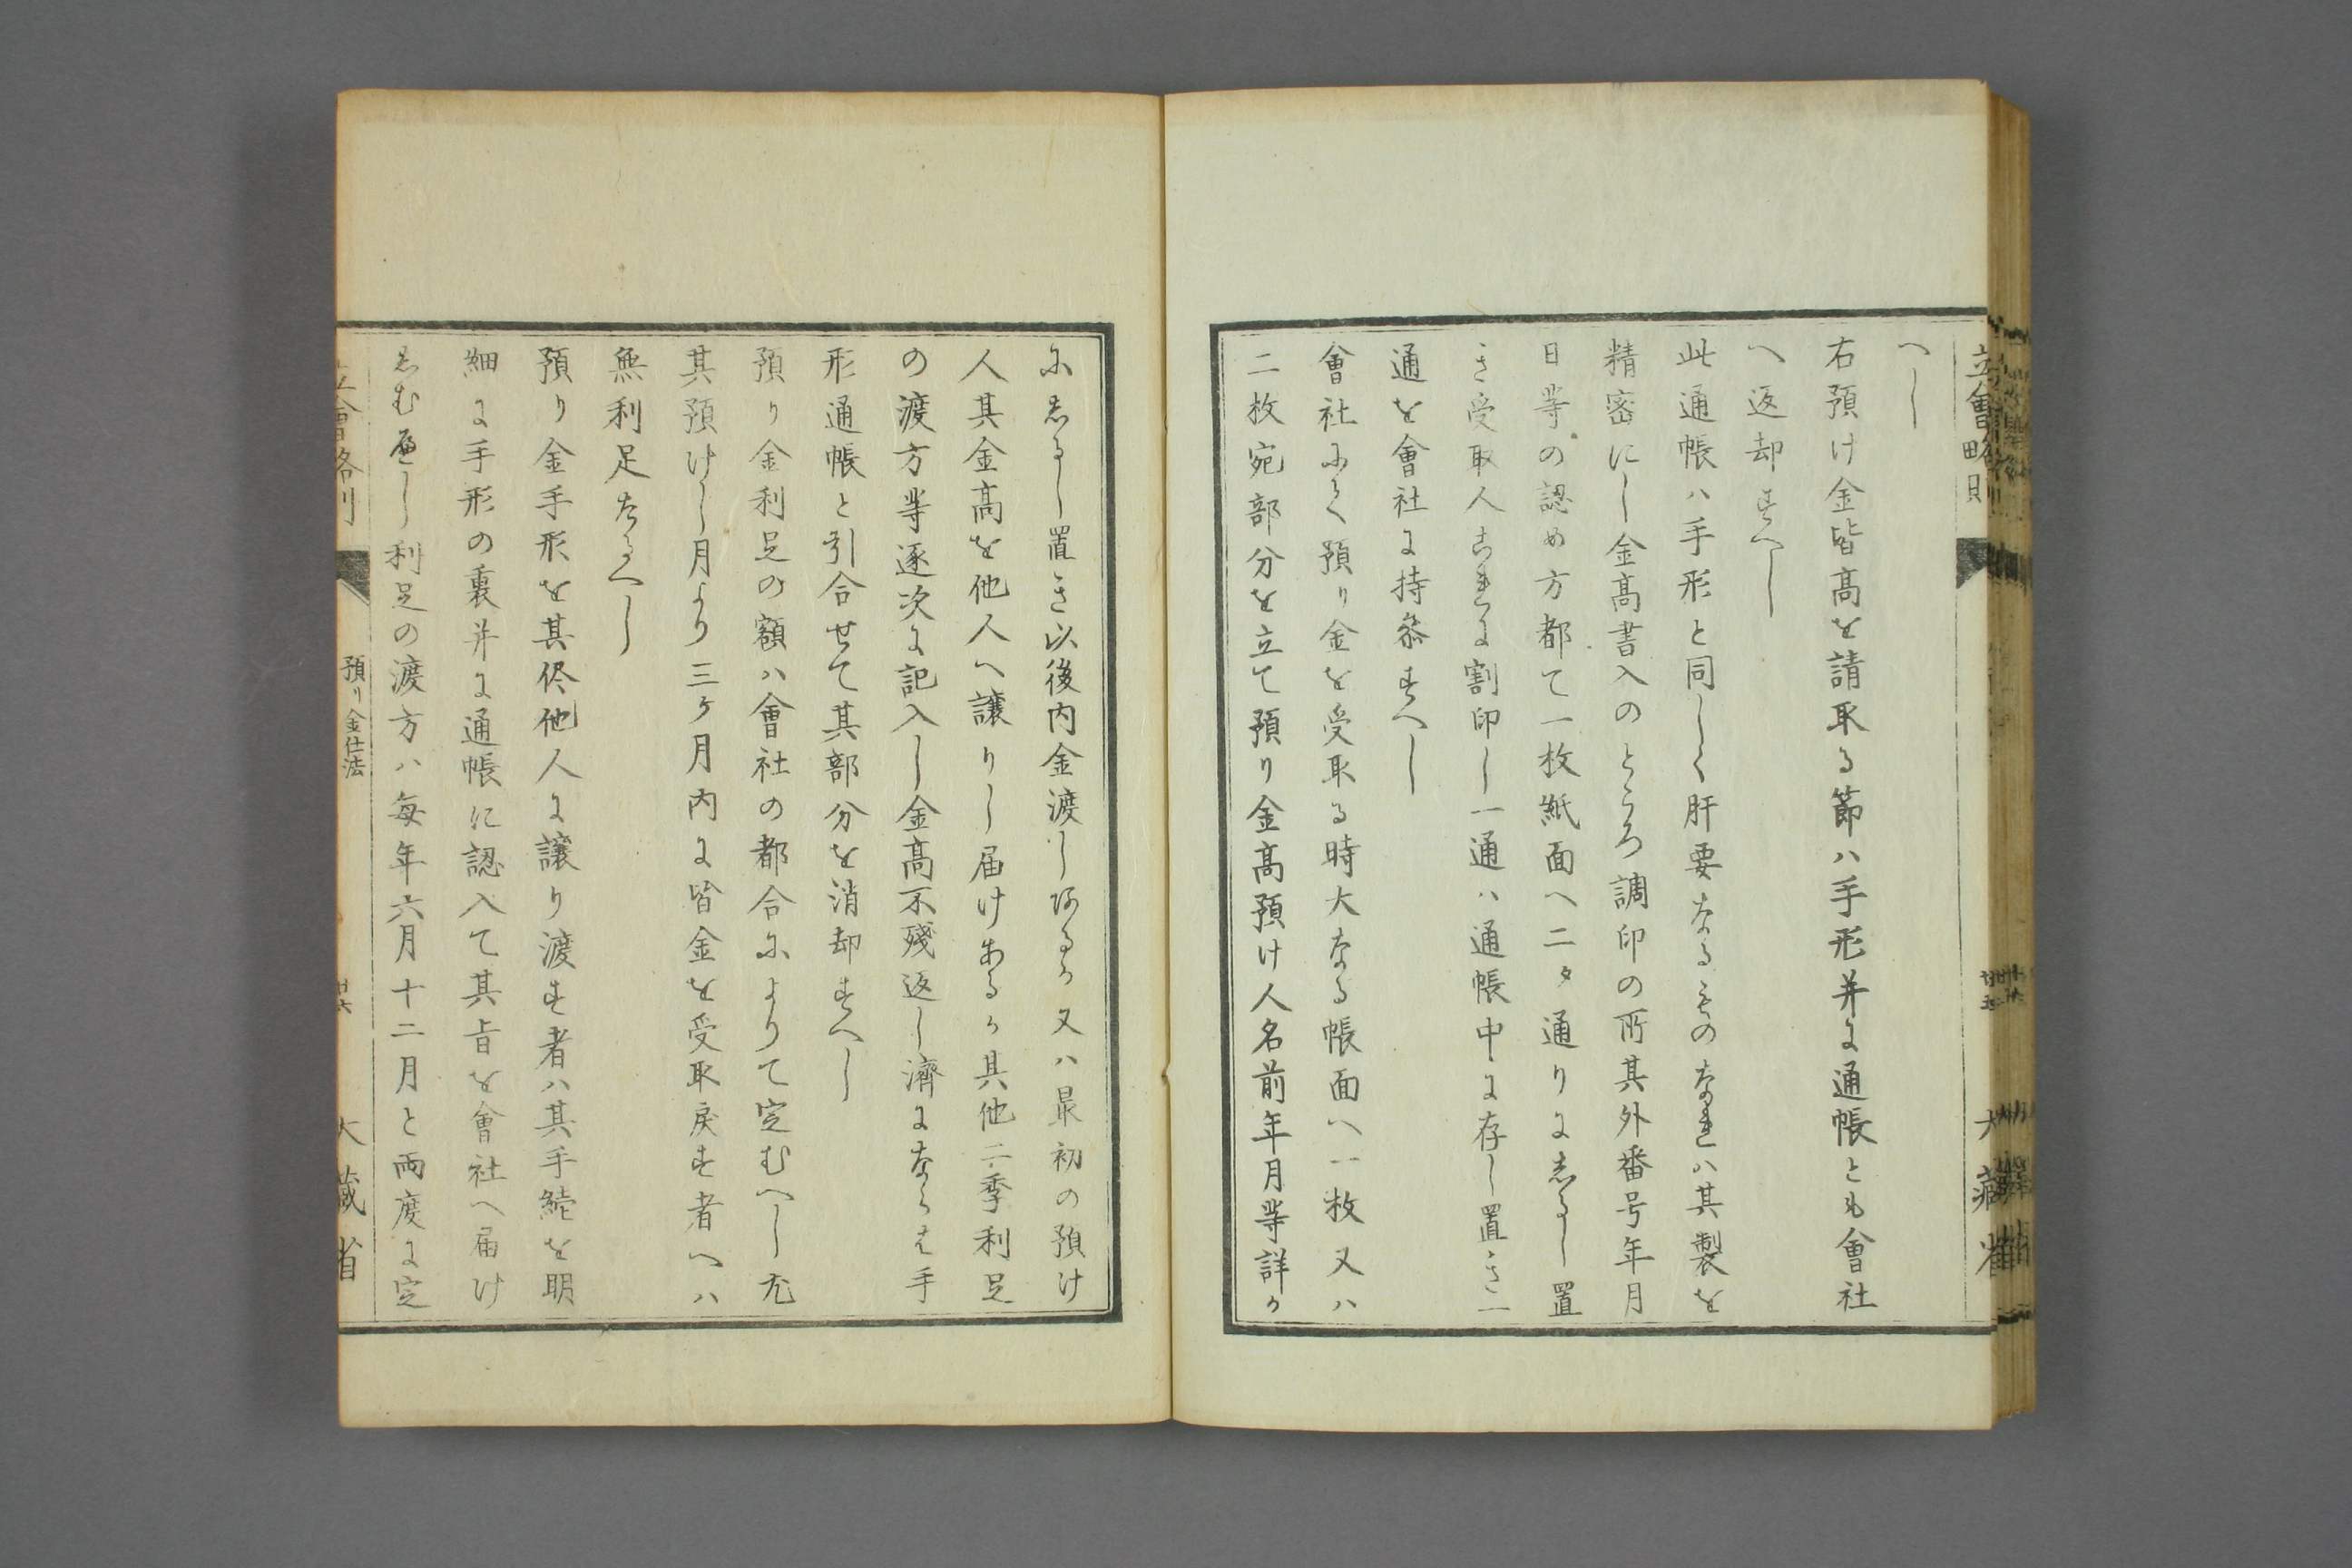 立會略則
大藏省
へし
右預け金皆高を請取る節ハ手形并に通帳とも會社
へ返却すへし
此通帳ハ手形と同しく肝要なるものなれハ其製を
精密にし金高書入のところ調印の所其外番号年月
日等の認め方都て一枚紙面へ二タ通りにしるし置
き受取人これに割印し一通ハ通帳中に存し置き一
通を會社に持參すへし
會社にて預り金を受取る時大なる帳面へ一枚又ハ
二枚宛部分を立て預り金高預け人名前年月等詳か
にしるし置き以後内金渡しあるか又ハ最初の預け
人其金高を他人へ讓りし届けあるか其他二季利足
の渡方等逐次に記入し金高不殘返し濟にならは手
形通帳と引合せて其部分を消却すへし
預り金利足の額ハ會社の都合によりて定むへし尤
其預けし月より三ヶ月内に皆金を受取戻す者へハ
無利足たるへし
預り金手形を其侭他人に讓り渡す者ハ其手續を明
細に手形の裏并に通帳に認入て其旨を會社へ届け
しむへし利足の渡方ハ毎年六月十二月と兩度に定
立會略則
預り金仕法
廿六
大藏省